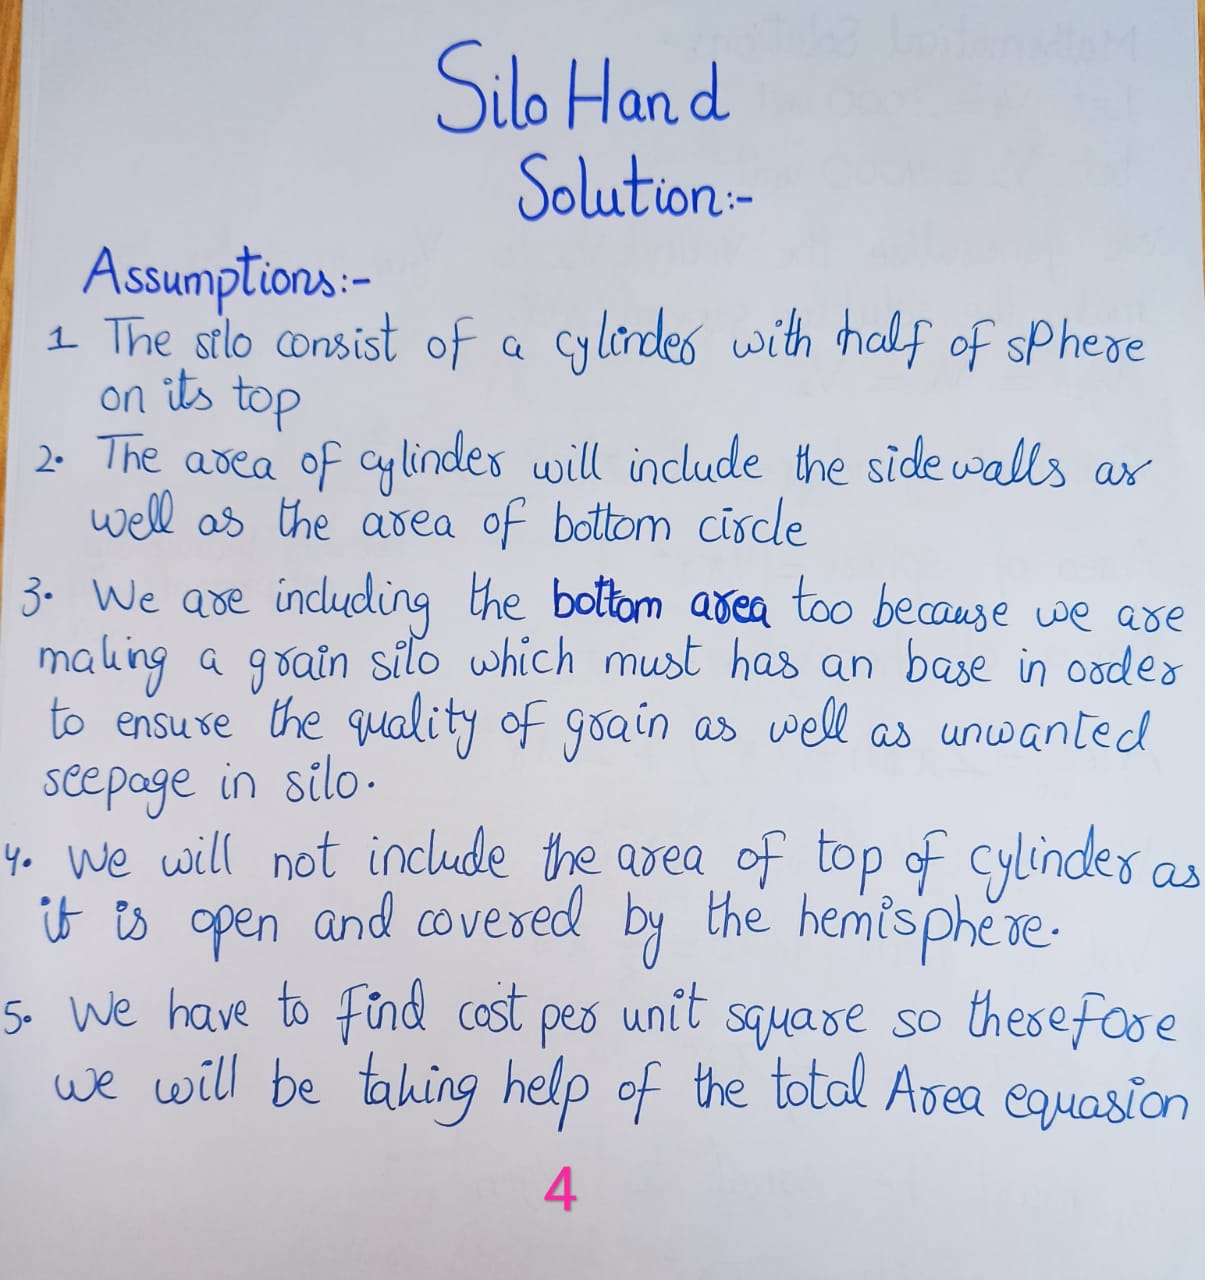 Silo Hand
Solution:-
Assumptions:-
1 The silo consist of a cylinder with half of sphere
on its top
2. The area of cylinder will include the side walls as
well as the area of bottom circle
3. We are including the bottom area too because we are
making a grain silo which must has an base in order
to ensure the quality of grain as well as unwanted
seepage in silo.
4. We will not include the area of top of cylinder as
it is open and covered by the hemisphere.
5. We have to find cost per unit square so therefore
we will be taking help of the total Area equasion
4